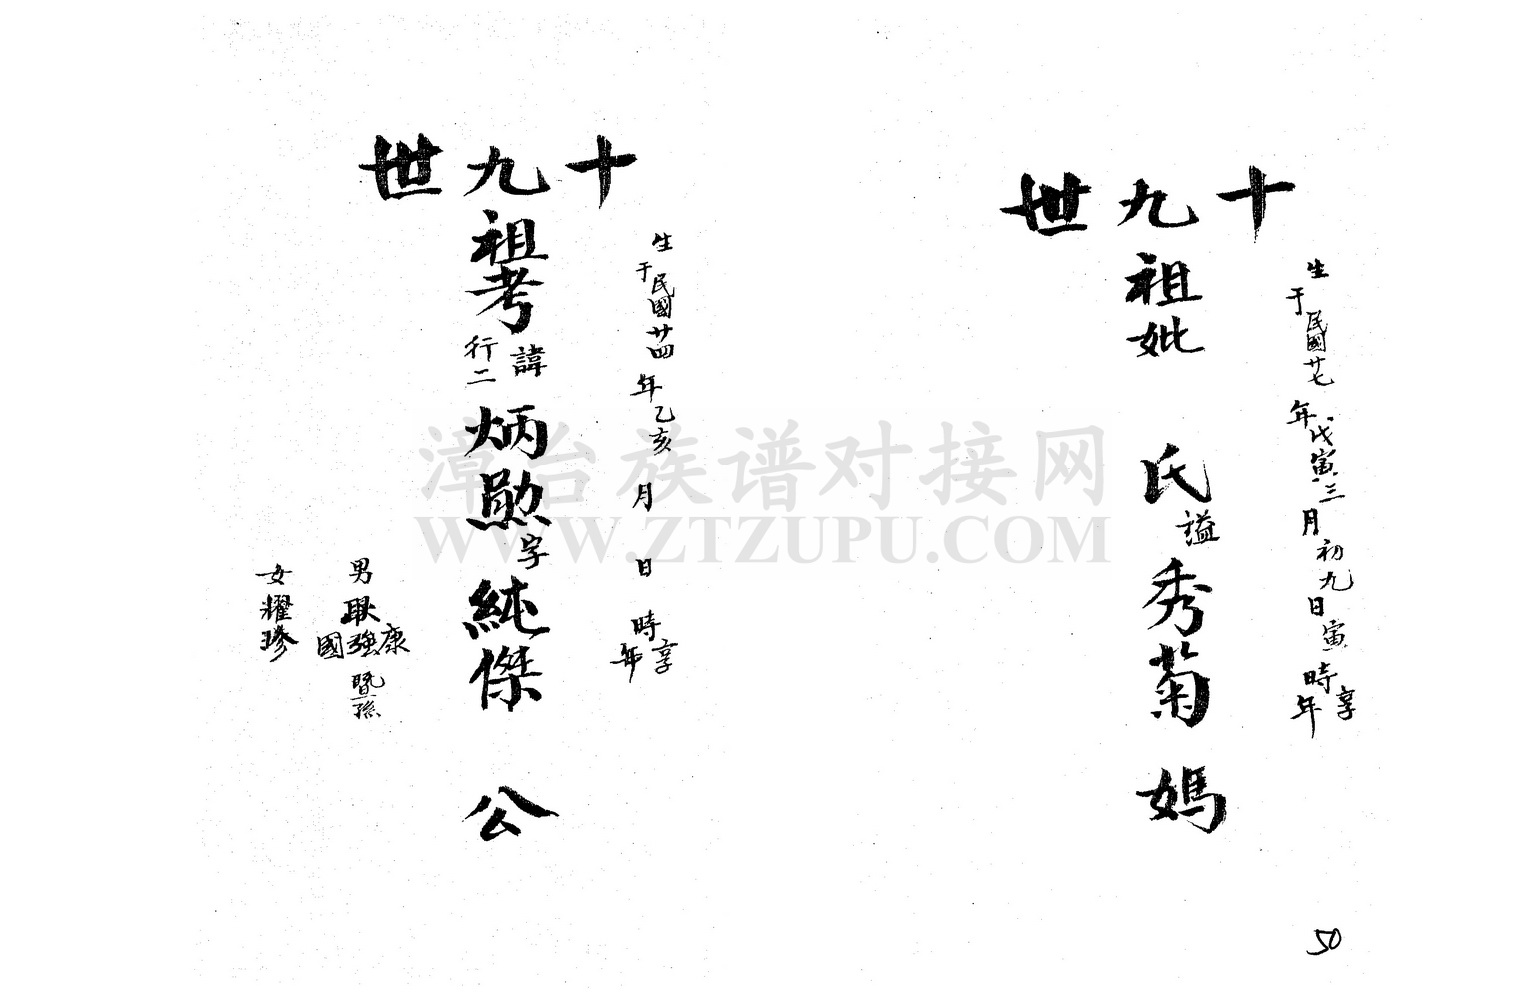 十九世
生于民國廿七年戊寅三月初九日寅時享年
祖妣 氏謚秀菊媽
50
十九世
生于民國廿四年乙亥 月 日 時享年
祖考諱行二炳勲字純傑公
男耿康強國暨孫
女耀珍
漳台族谱对接网
WWW.ZTZUPU.COM